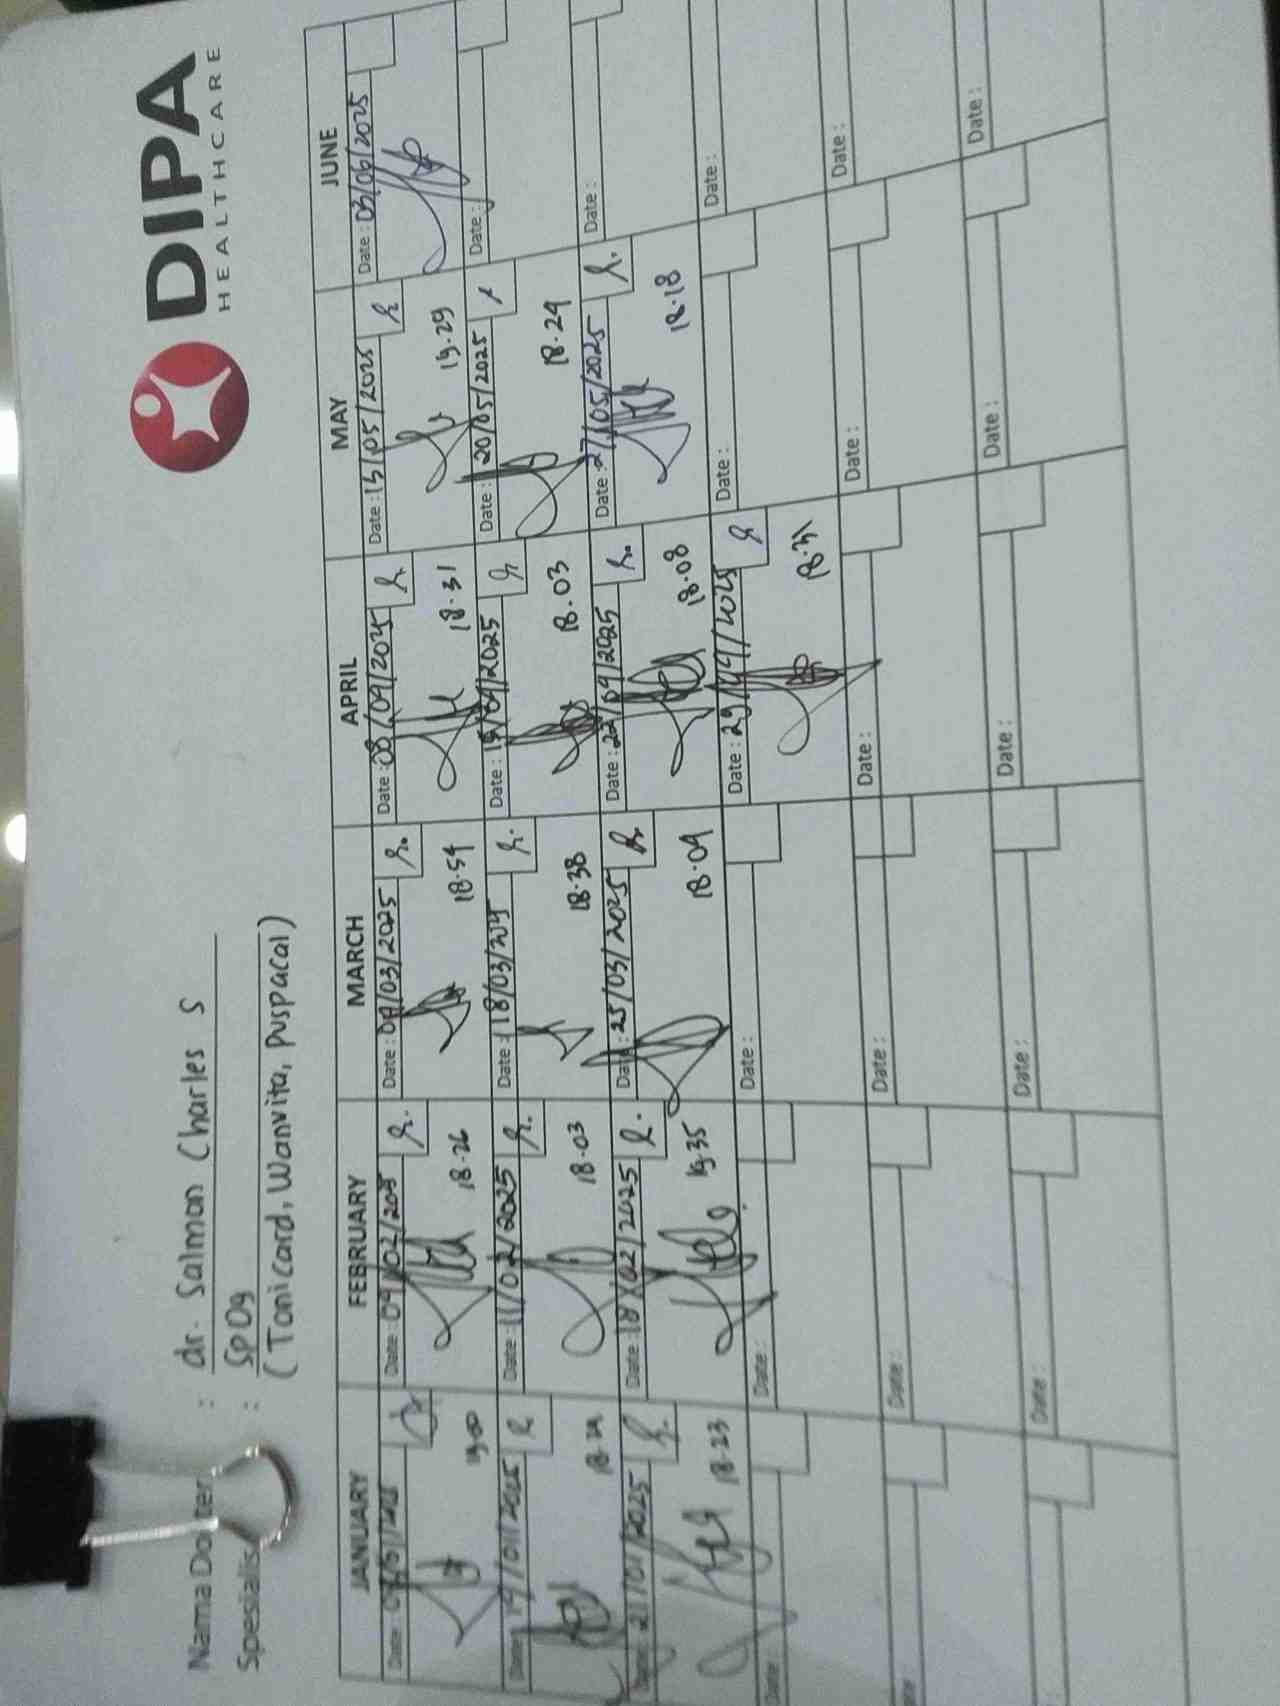 DIPA
HEALTHCARE
Nama Dokter : dr. Salmon Charles S
Spesialis : SpOg
(Tonicard, Wanvita, Puspacal)
JANUARY FEBRUARY MARCH APRIL MAY JUNE
Date : Date : 04/02/2025 Date : 04/03/2025 Date : 08/04/2025 Date : 15/05/2025 Date : 03/06/2025
19.00 18.26 18.54 18.31 19.29
Date : 14/01/2025 Date : 11/02/2025 Date : 18/03/2025 Date : 15/04/2025 Date : 20/05/2025 Date :
18.03 18.38 18.03 18.24
Date : 21/01/2025 Date : 18/02/2025 Date : 25/03/2025 Date : 22/04/2025 Date : 27/05/2025 Date :
18.23 19.35 18.04 18.08 18.18
Date : Date : Date : Date : 29/04/2025 Date : Date :
18.31
Date : Date : Date : Date : Date : Date :
Date : Date : Date : Date : Date :